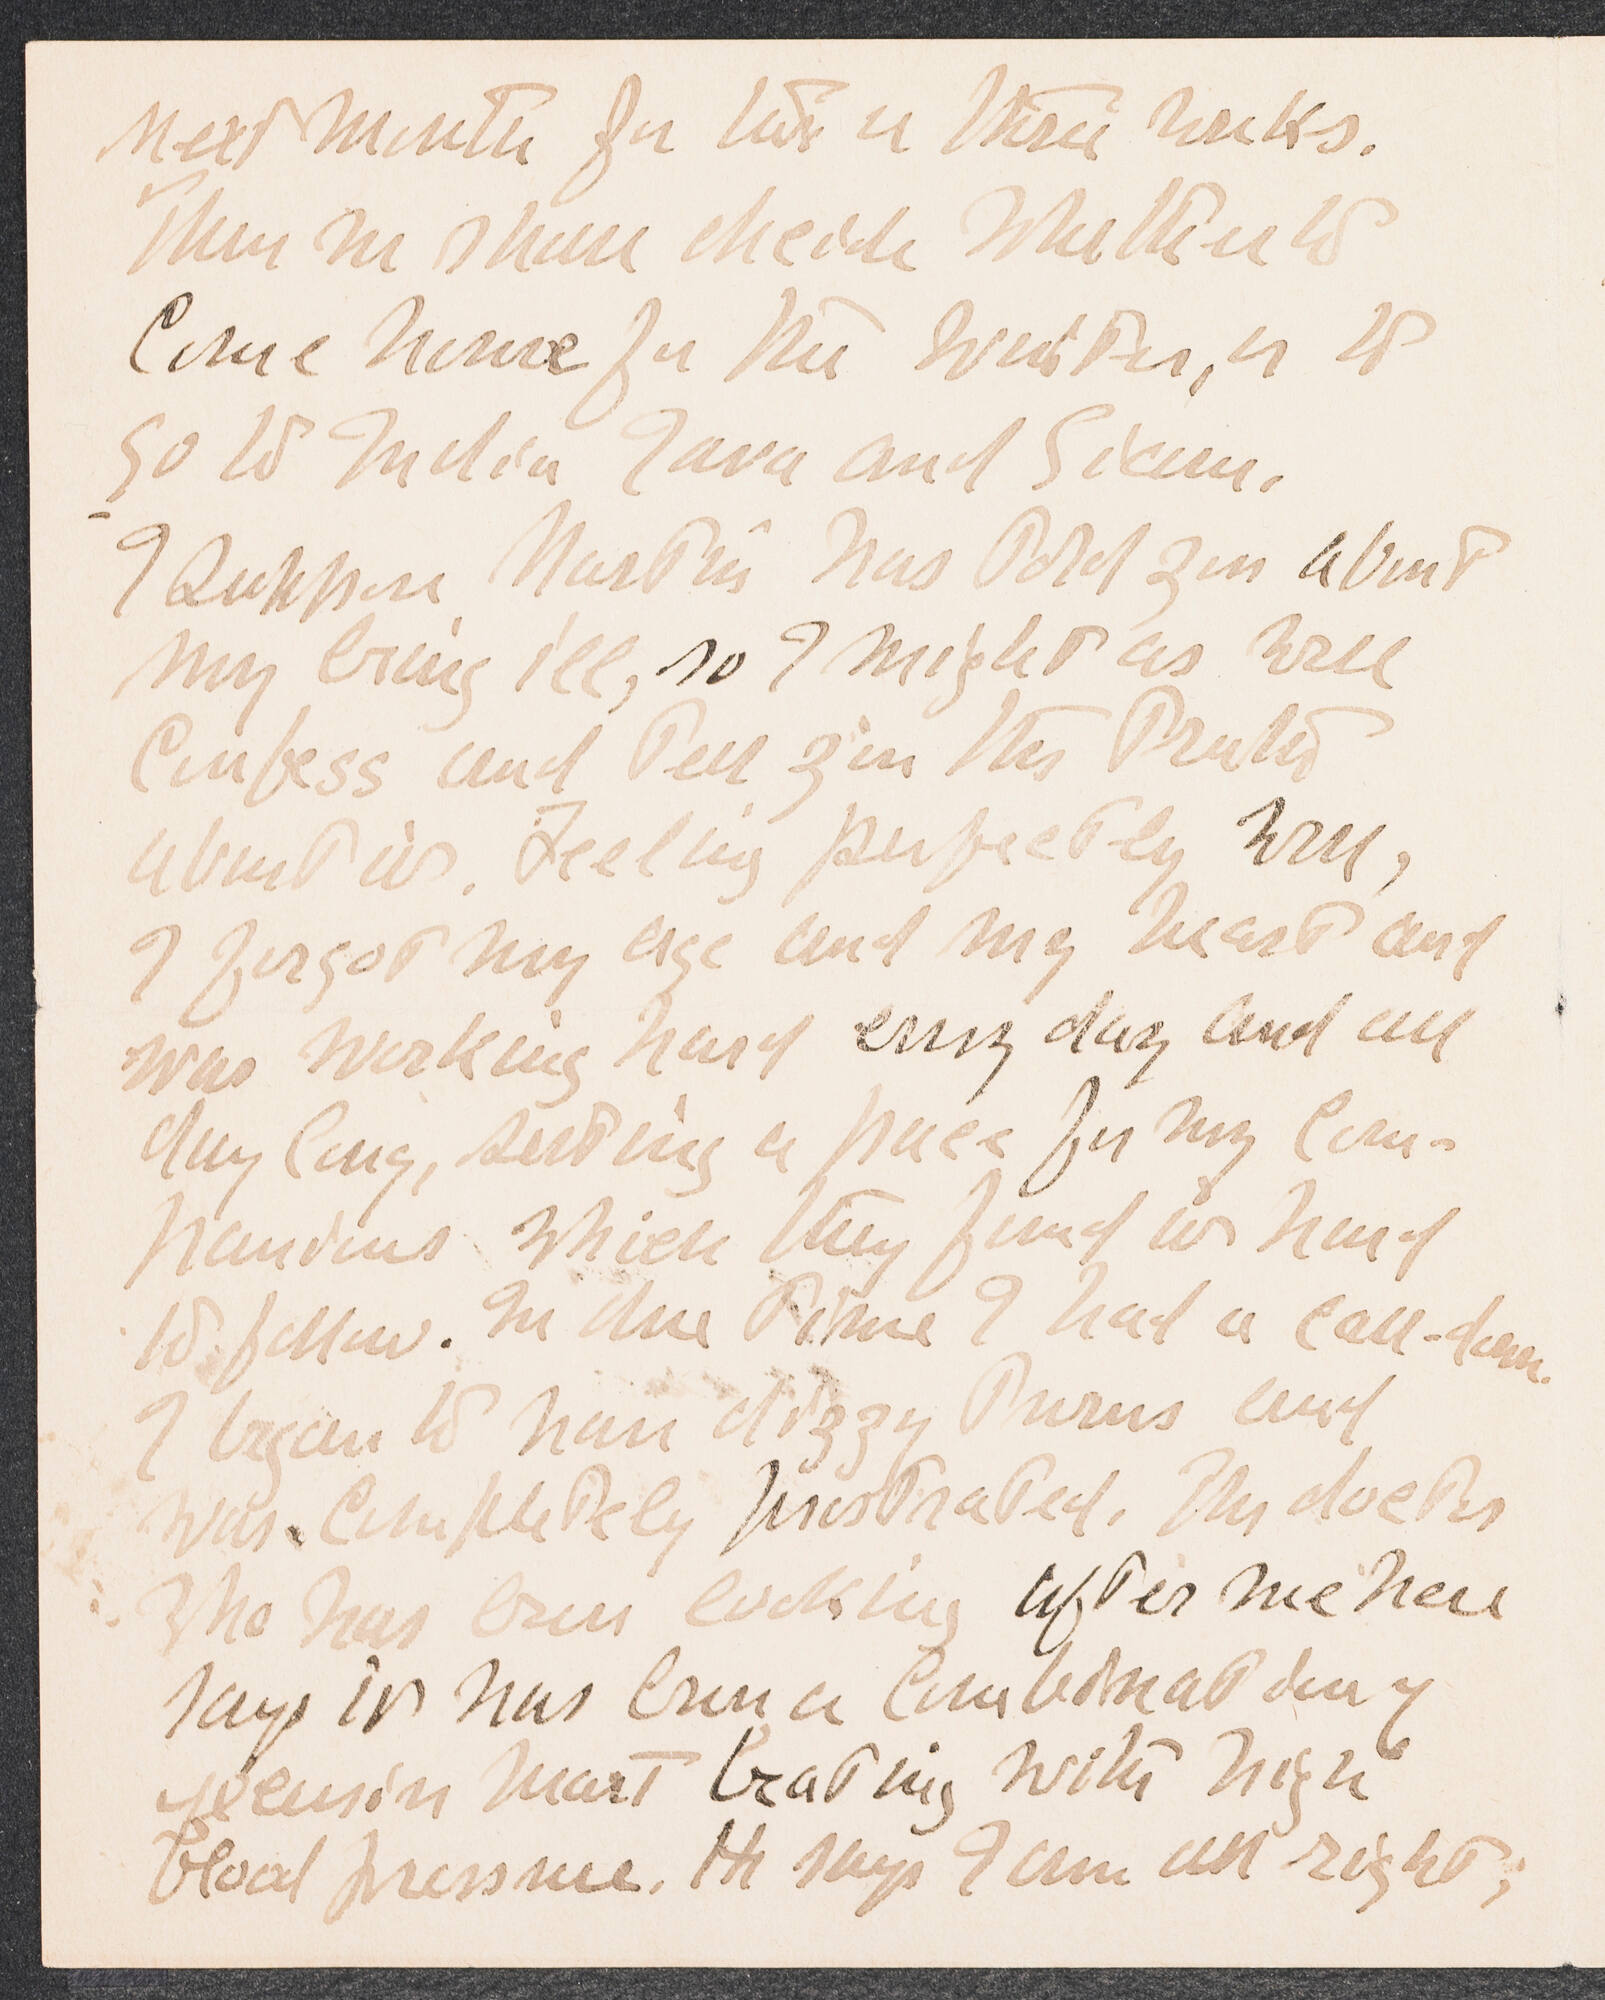 next month for two or three weeks.
Then we shall decide whether to
come home for the winter, or to
go to India Java and Siam.
I suppose Martin has told you about
my being ill, so I might as well
confess and tell you the truth
about it. Feeling perfectly well,
I forgot my age and my heart and
was working hard every day and all
day long, setting a pace for my com-
panions which they found it hard
to follow. In due time I had a call-down.
I began to have dizzy turns and
was completely prostrated. The doctor
who has been looking after me here
says it has been a combination of
excessive heart beating with high
blood pressure. He says I am all right;